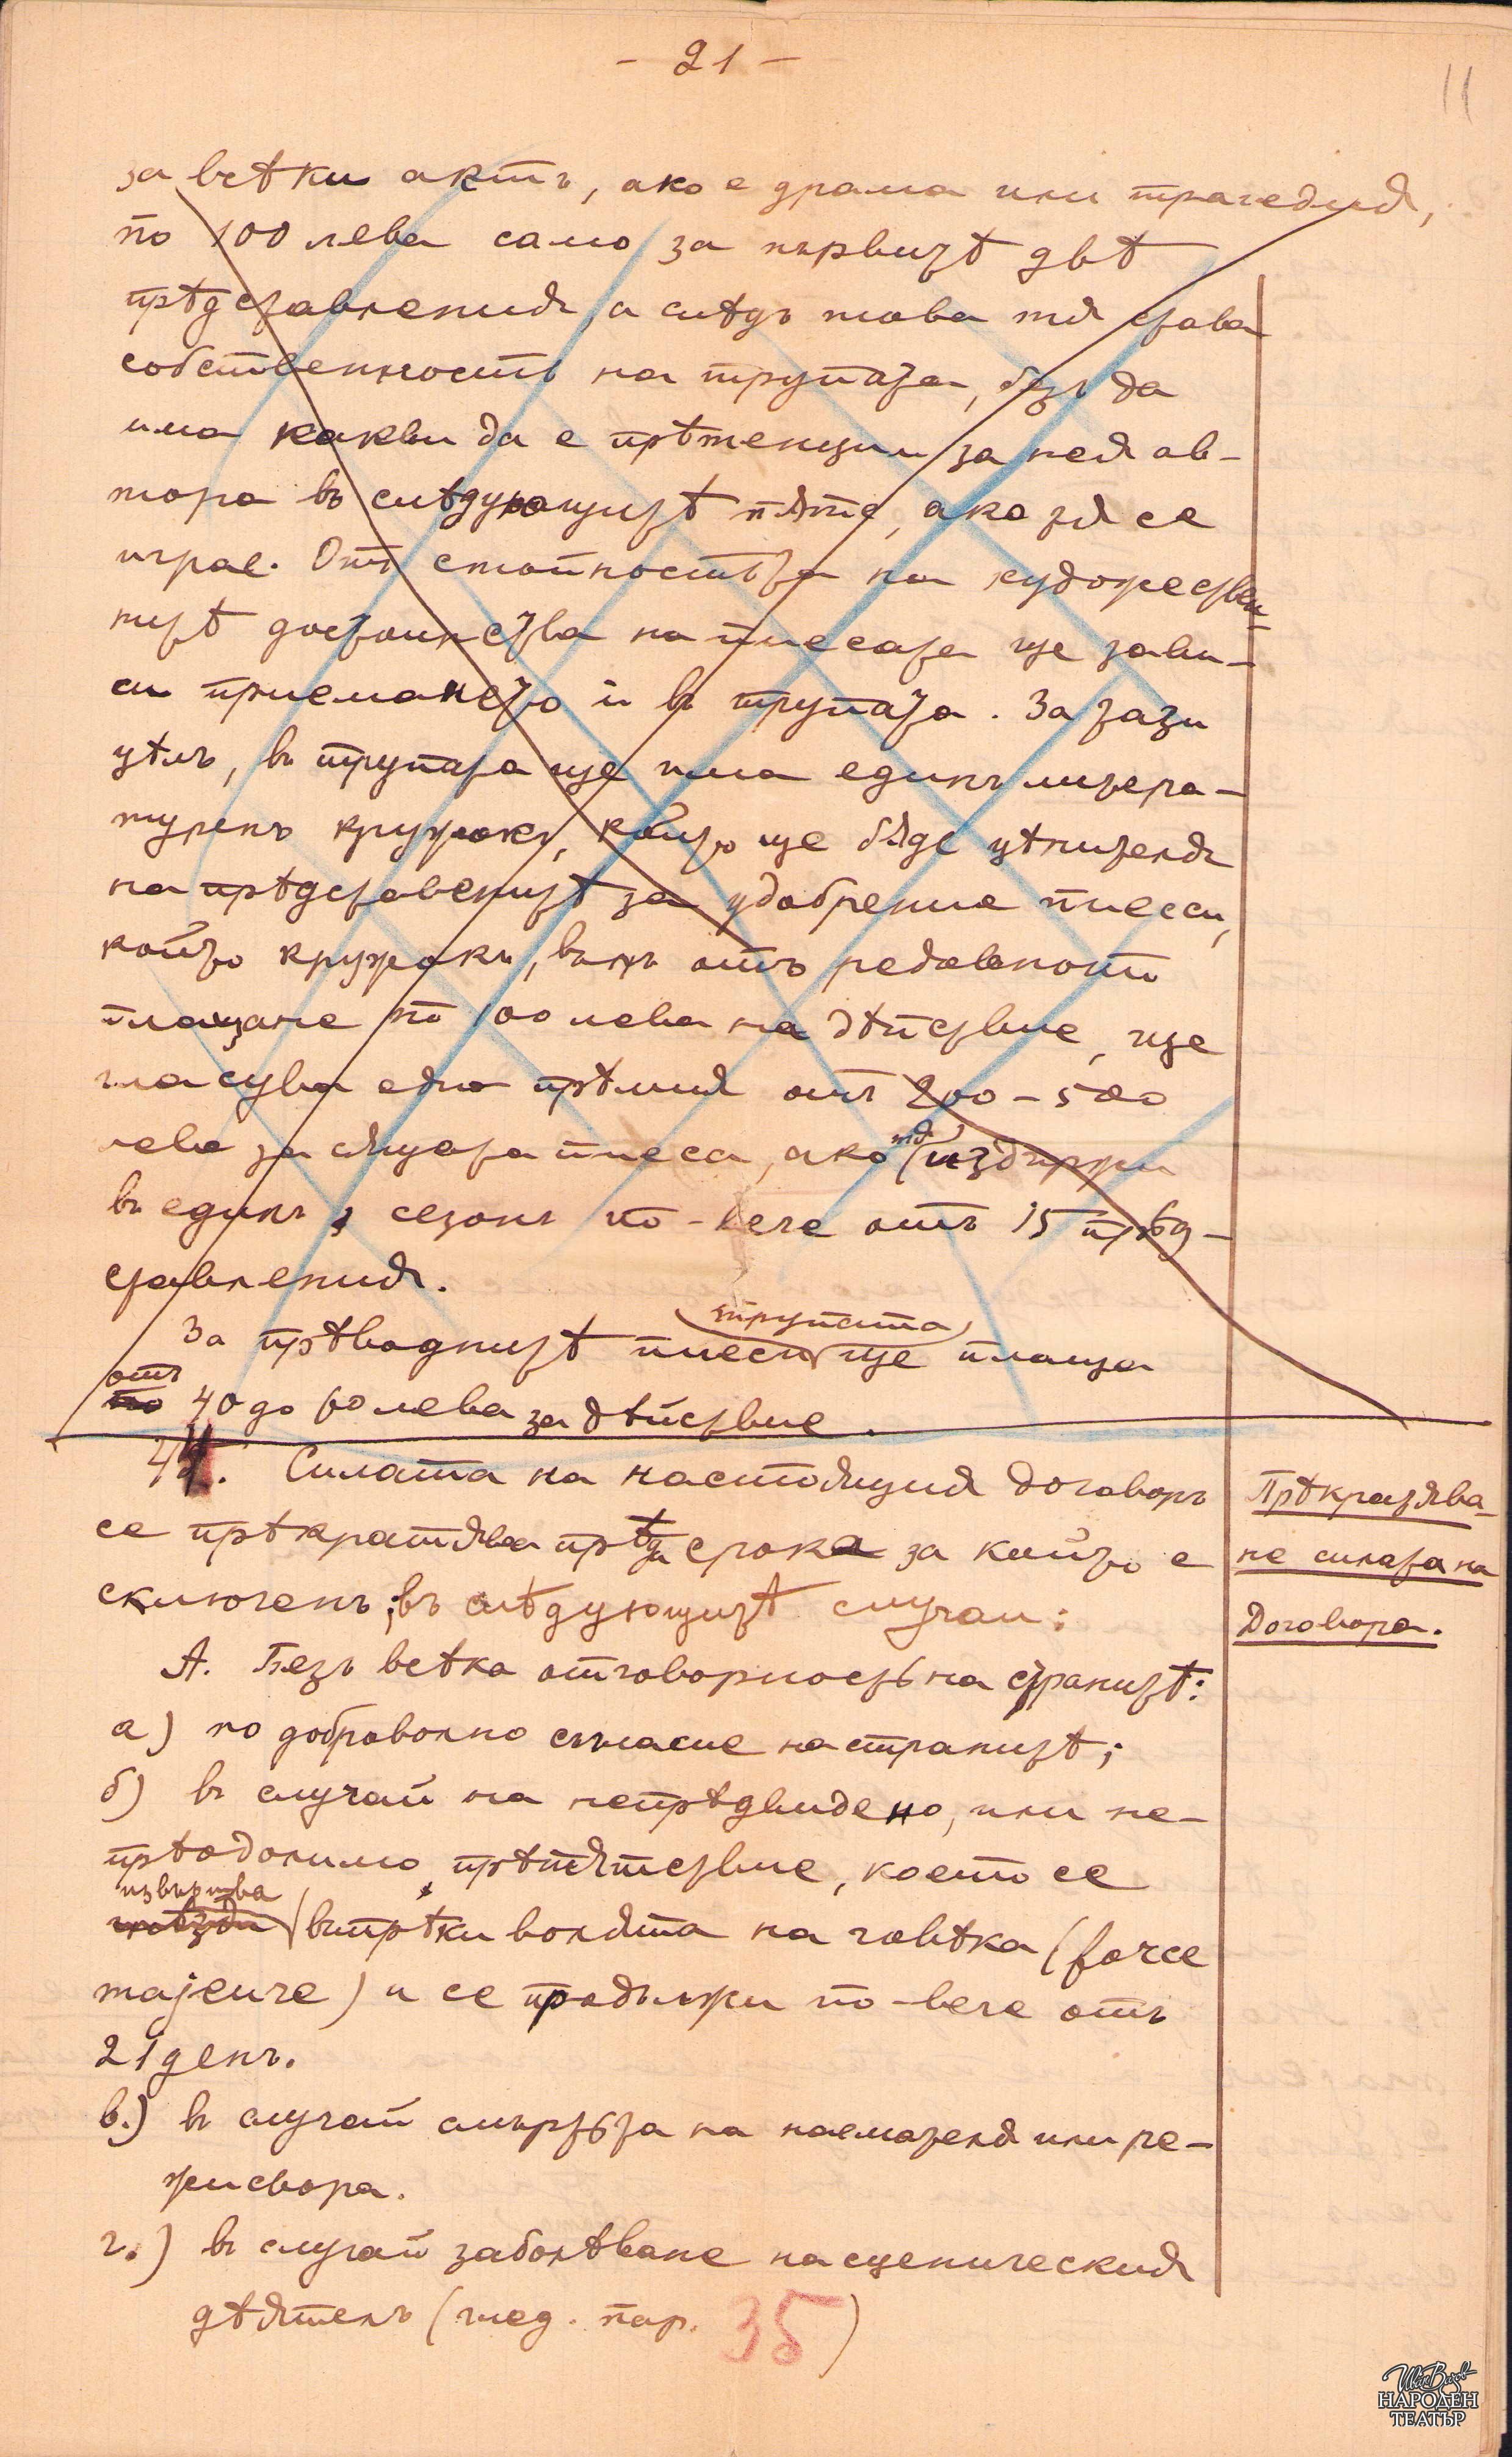 - 21 -
11
за всѣки актъ, ако е драма или трагедия,
по 100 лева само за първитѣ двѣ
прѣдставления, а слѣдъ това тя става
собственность на трупата, безъ да
има какви да е прѣтенции за нея ав-
тора въ слѣдующитѣ пѫти, ако тя се
играе. Отъ стойностьта на художествен-
нитѣ достоинства на пиесата ще зави-
си приемането ѝ въ трупата. За тази
цѣль, въ трупата ще има единъ литера-
туренъ кружокъ, който ще бѫде цѣнителя
на прѣдставенитѣ за удобрение пиесси,
който кружокъ, вънъ отъ редовното
плащане по 100 лева на дѣйствие, ще
гласува една прѣмия отъ 200-500
лева за сѫщата пиеса, ако тя издържи
въ единъ сезонъ по-вече отъ 15 прѣд-
ставления.
За прѣводнитѣ пиеси трупата ще плаща
отъ
по 40 до 60 лева за дѣйствие.
44. Силата на настоящия договоръ
се прѣкратява прѣди срока за който е
сключенъ, въ слѣдующитѣ случаи:
Прѣкратява-
не силата на
договора.
А. Безъ всѣка отговорность на странитѣ:
а) по доброволно съгласие на странитѣ;
б) въ случай на непрѣдвидено, или не-
прѣодолимо прѣпятствие, което се
извършва
въпрѣки волята на човѣка (force
majeure) и се продължи по-вече отъ
21 день.
в.) въ случай смъртьта на наемателя или ре-
жисьора.
г.) въ случай заболѣване на сценическия
дѣятель (глед. пар. 35)
Иван Вазов
НАРОДЕН
ТЕАТЪР